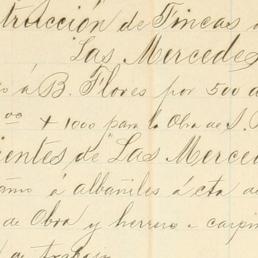 trucción de Fincas
Las Mercedes
á B. Flores por 500
00 + 1000 para la Obra de S.
ientes de "Las Merce
á albañiles á cta de
de Obra y herrero ó carpin
de trabajo